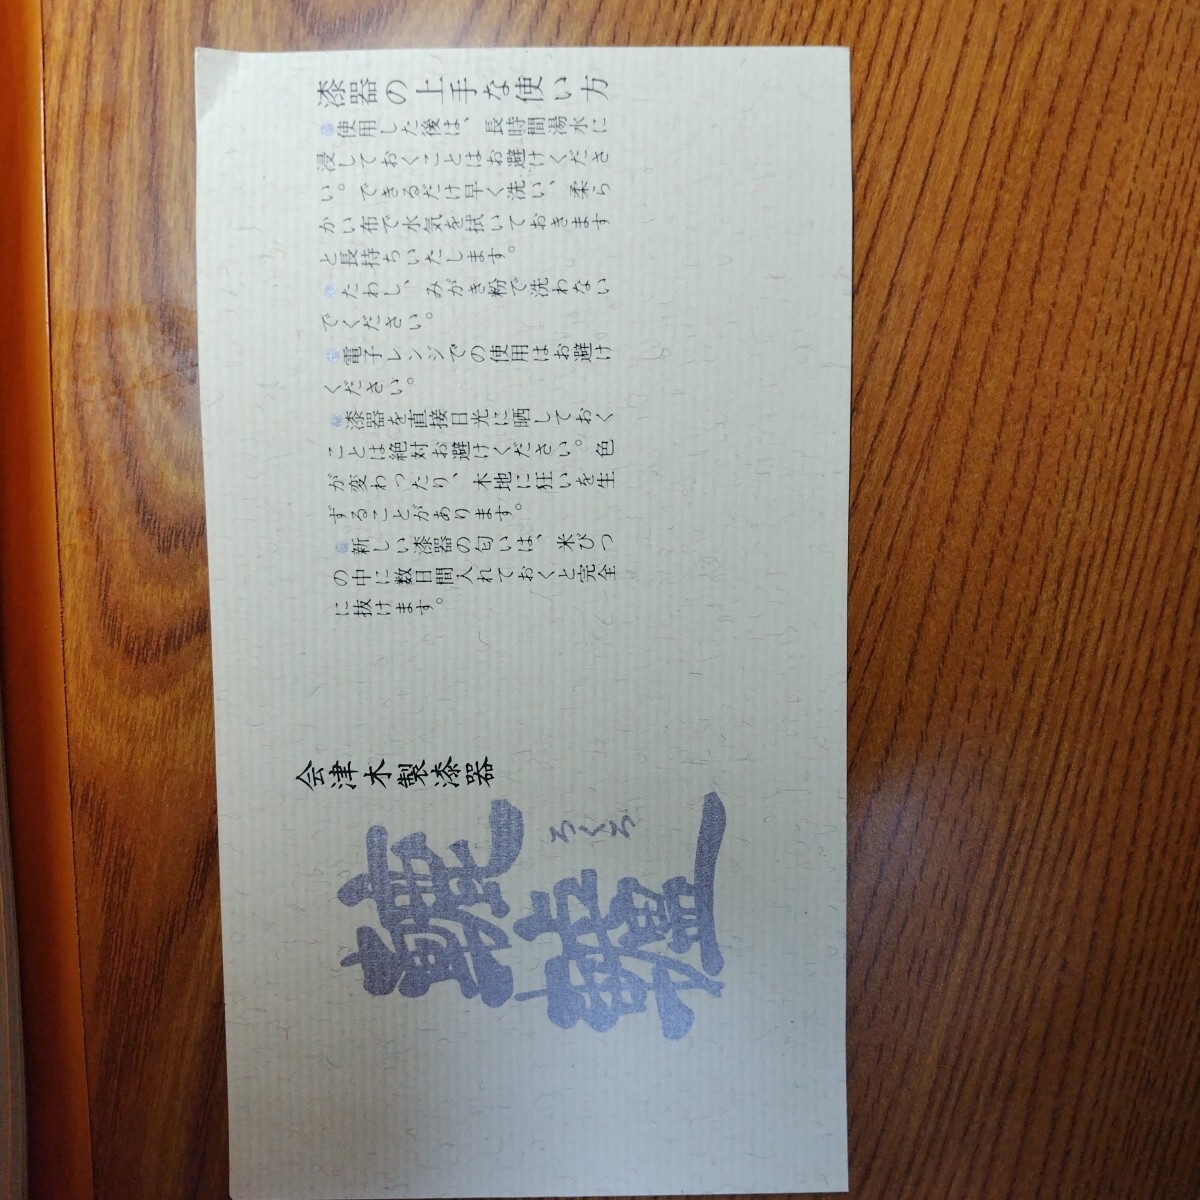 漆器の上手な使い方
●使用した後は、長時間湯水に
浸しておくことはお避けくださ
い。できるだけ早く洗い、柔ら
かい布で水気を拭いておきます
と長持ちいたします。
●たわし、みがき粉で洗わない
でください。
●電子レンジでの使用はお避け
ください。
●漆器を直接日光に晒しておく
ことは絶対お避けください。色
が変わったり、木地に狂いを生
ずることがあります。
●新しい漆器の匂いは、米びつ
の中に数日間入れておくと完全
に抜けます。
会津木製漆器
轆轤
ろくろ